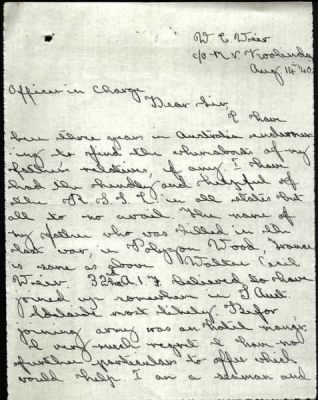 W. C. Weir
c/o M.V. Koolinda
Aug 14 '40
Officer in Charge
Dear Sir,
I have
been three years in Australia endeavour
ing to find the whereabouts of my
father's relatives, if any. I have
had the handy and helpful of
the R S S I L in all states but
all to no avail. The name of
my father who was killed in the
last war, in Polygon Wood, France
is same as above Walter Cecil
Weir 32nd A.I.F. believed to have
joined up somewhere in S Aust
Adelaide most likely. Befor
joining army was an hotel manager
I very much regret I have no
further particulars to offer which
would help I am a seaman and